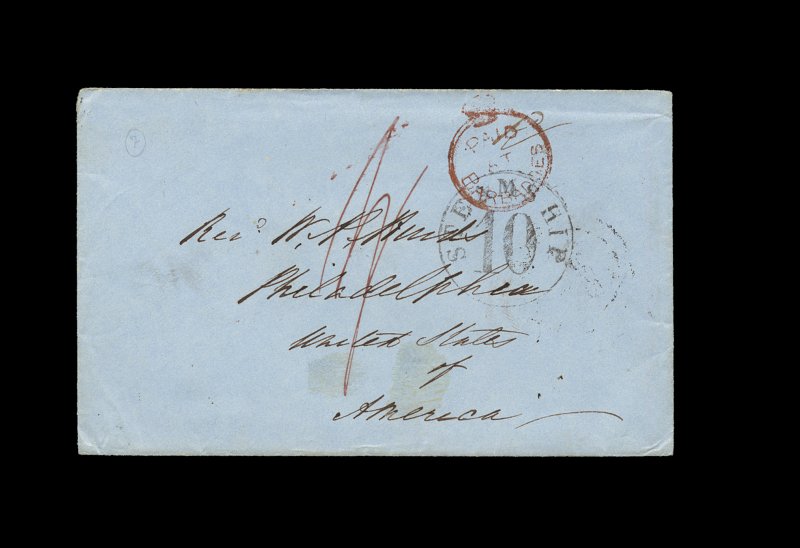 PAID
AT
BARBADOES
STEAMSHIP
10
Revd. W. A.
Philadelphia
United States
of
America